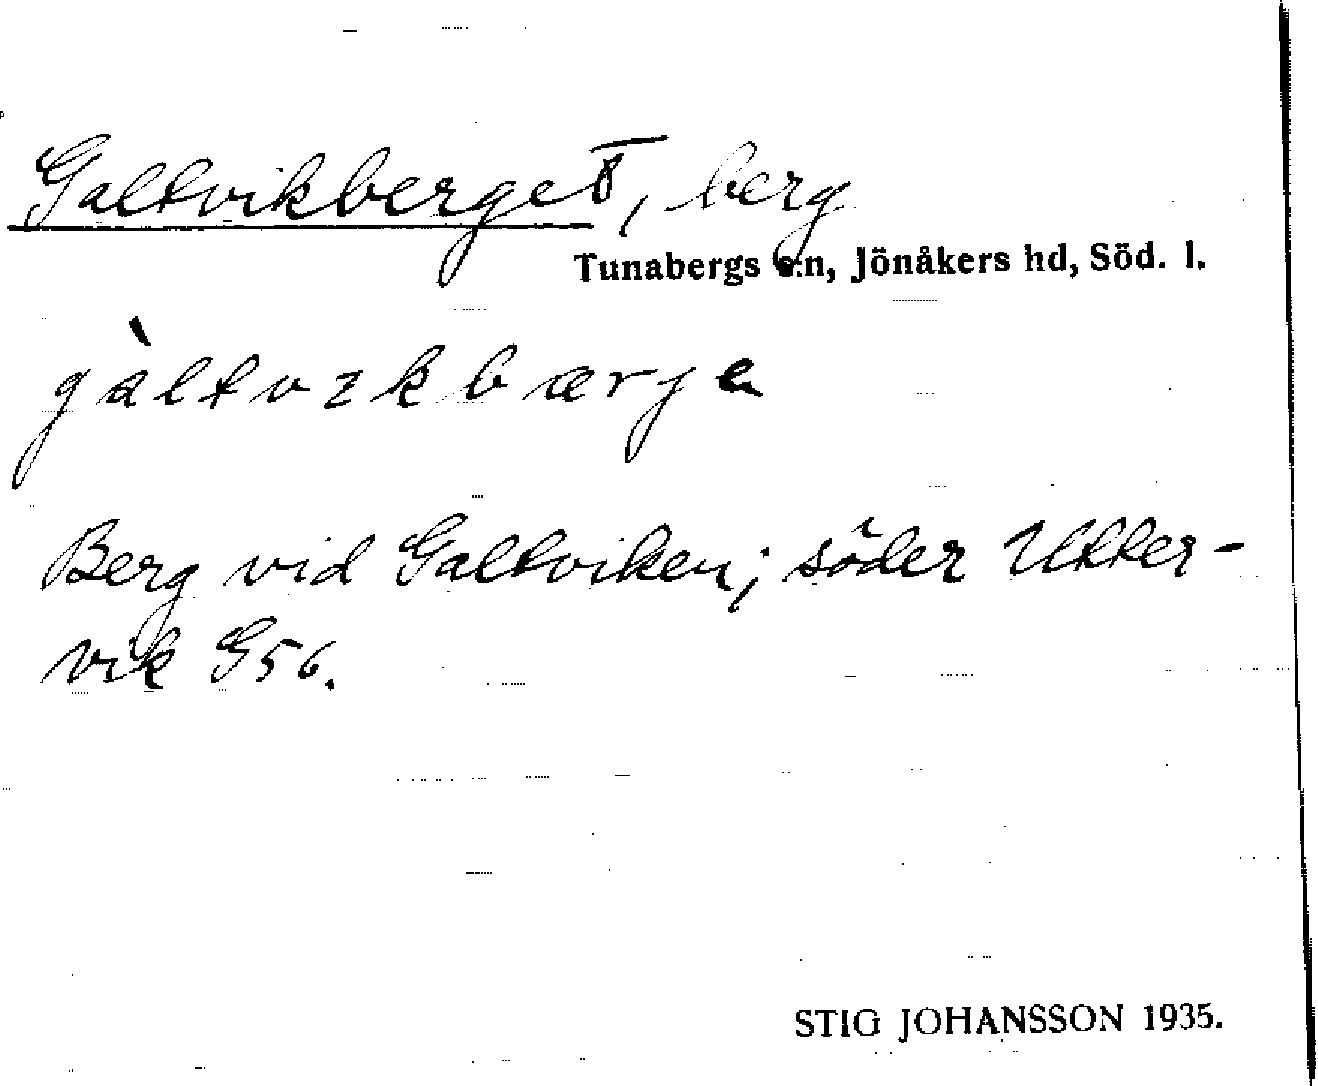 Galtvikberget, berg
Tunabergs s:n, Jönåkers hd, Söd. l.
gàltvɩkbærjə
Berg vid Galtviken; söder Utter-
vik G56.
STIG JOHANSSON 1935.